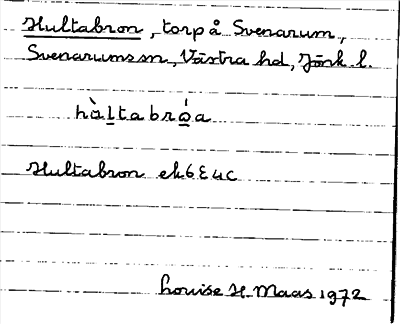 Hultabron, torp å Svenarum,
Svenarums sn, Västra hd, Jönk. l.
hàltabrǫ́a
Hultabron ek 6E4c
Louise H. Maas 1972